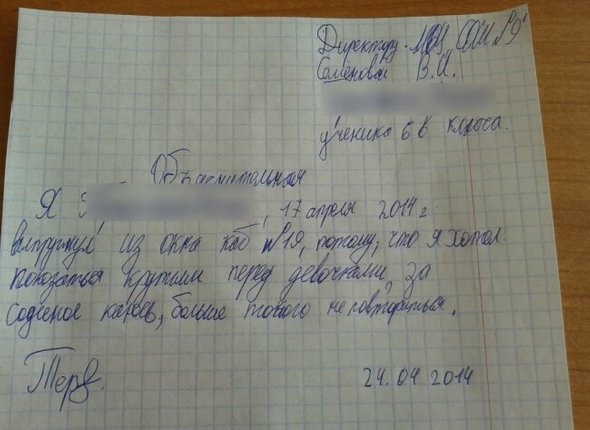 Директору МОУ СОШ №9
Семёновой В.И.
ученика 6 в класса.
Объяснительная
Я , 17 апреля 2014 г.
выпрыгнул из окна каб №19, потому, что я хотел
показаться крутым перед девочками, за
соденое каюсь, больше такого не повториться.
24.04 2014